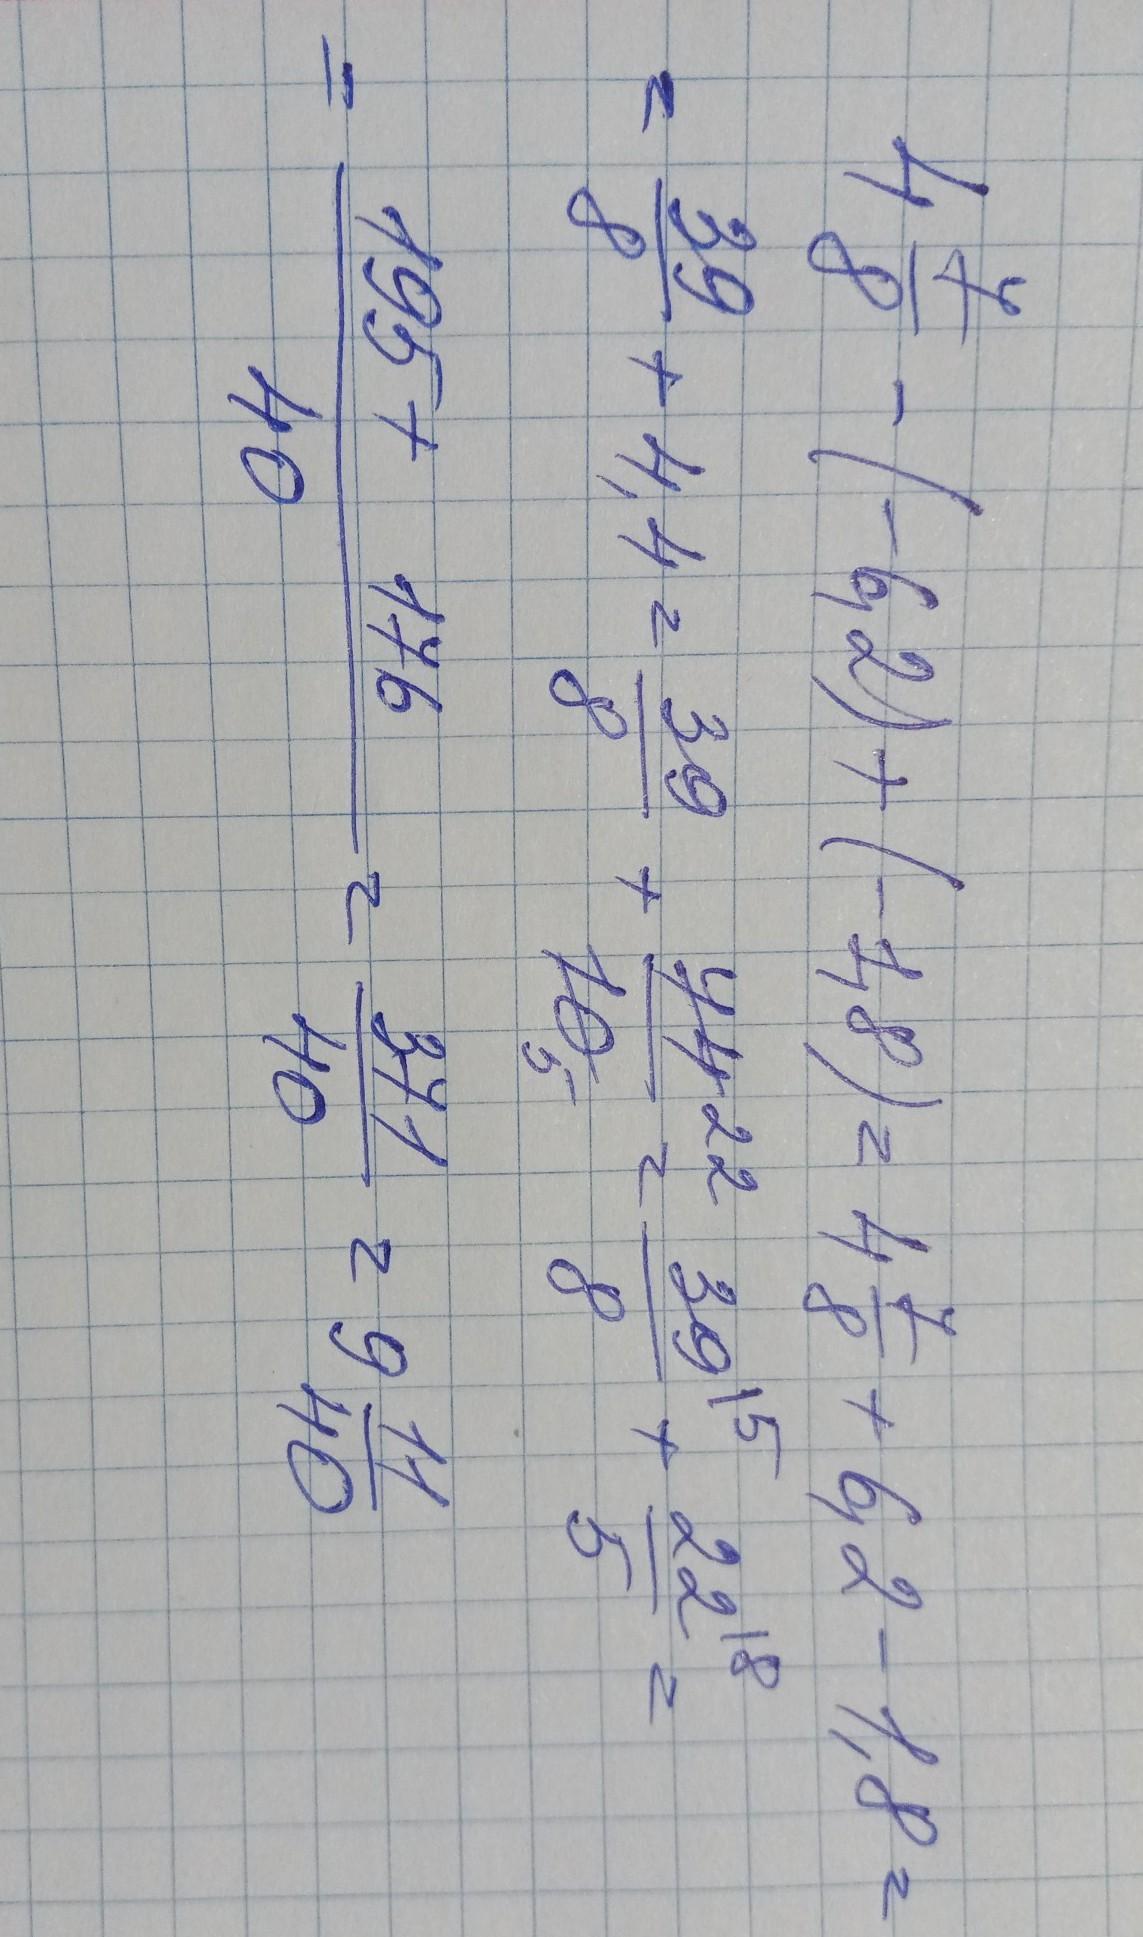 4 7/8 - (-6,2) + (-1,8) = 4 7/8 + 6,2 - 1,8 =
= 39/8 + 4,4 = 39/8 + 44 22/10 5 = 39\5/8 + 22\8/5 =
= 195 + 176/40 = 371/40 = 9 11/40